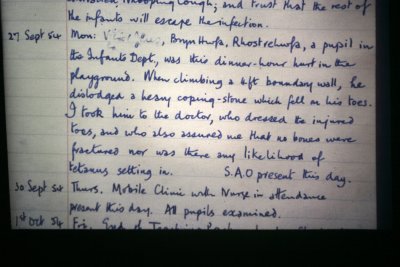 Whooping Cough; and trust that the rest of
the infants will escape the infection.
27 Sept 54 Mon: , Bryn Hyfa, Rhostrehwfa, a pupil in
the Infants Dept, was this dinner-hour hurt in the
playground. When climbing a 4ft boundary wall, he
dislodged a heavy coping-stone which fell on his toes.
I took him to the doctor, who dressed the injured
toes, and who also assured me that no bones were
fractured nor was there any likelihood of
tetanus setting in. S.A.O present this day.
30 Sept 54 Thurs. Mobile Clinic with Nurse in attendance
present this day. All pupils examined.
1st Oct 54 Fri.